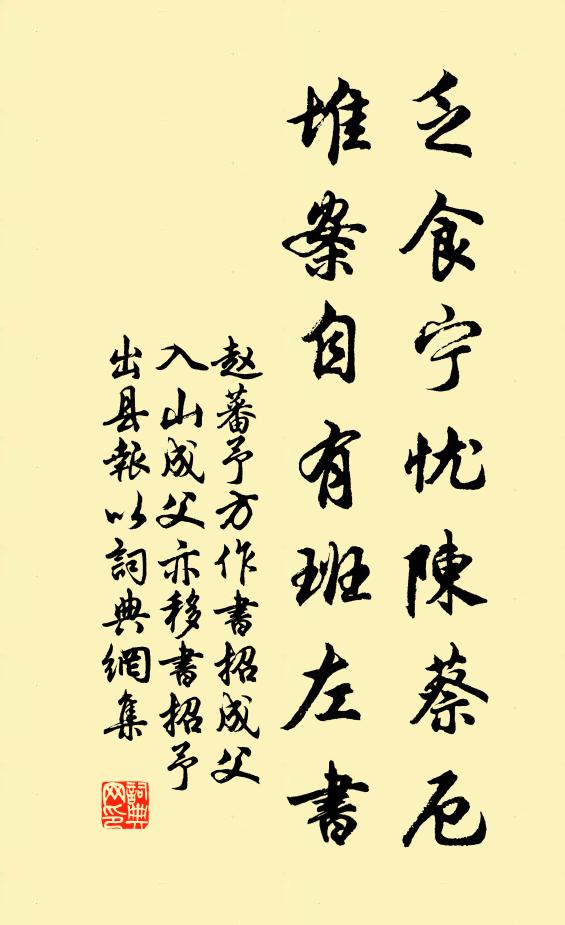 乏食宁忧陳蔡厄
堆案自有班左書
赵蕃予方作書招成父
入山成父亦移書招予
出县報以詞典網集
詞典
网印